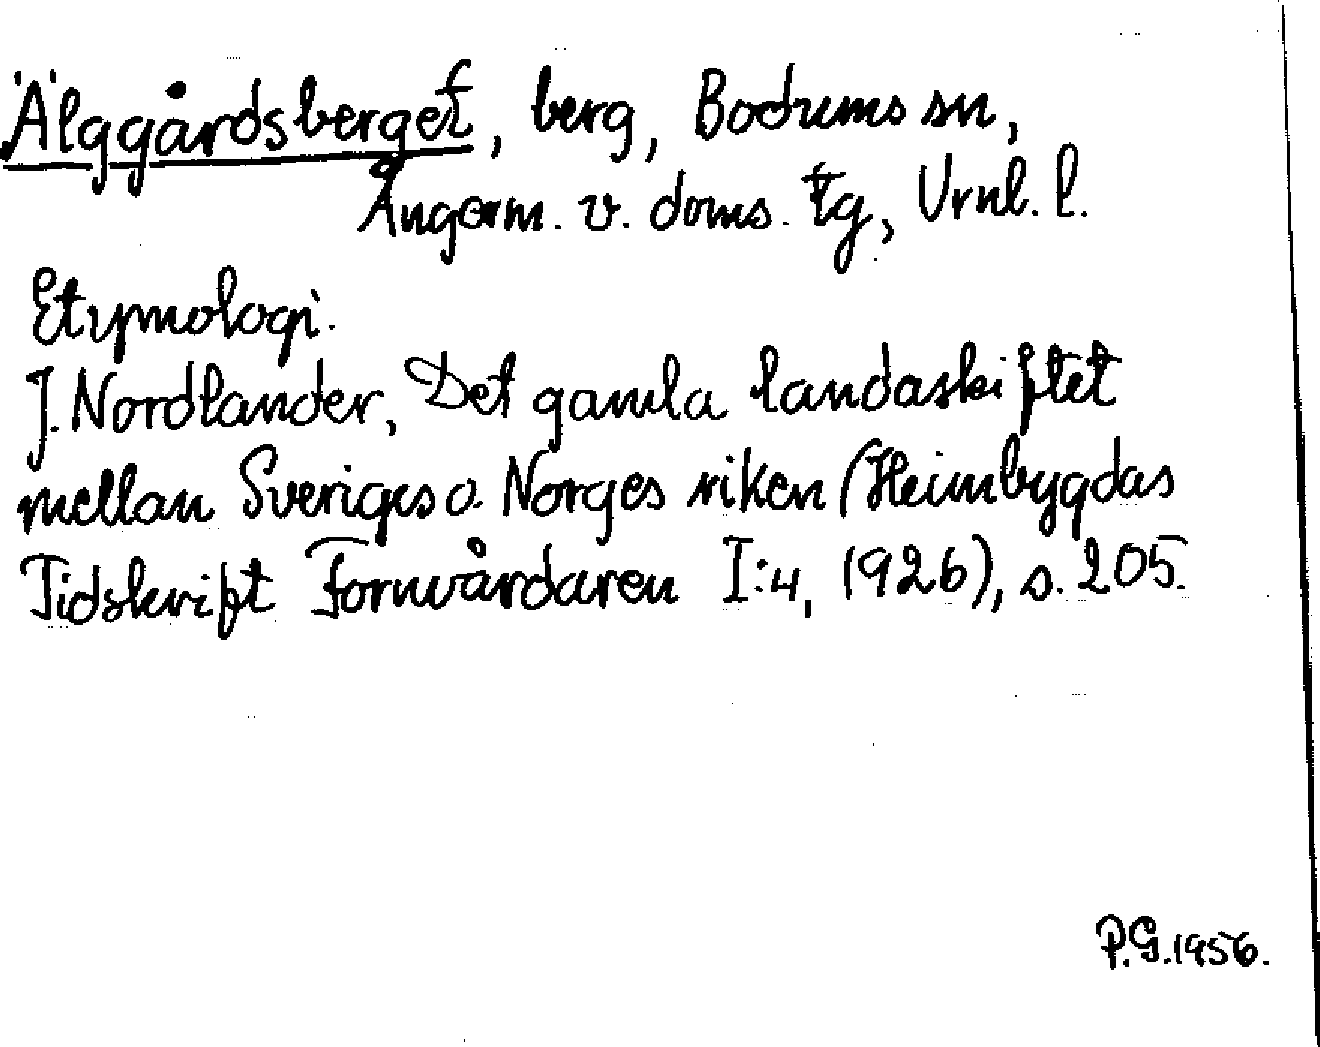 Älggårdsberget, berg, Bodums sn,
Ångerm. v. doms. tg, Vrnl. l.
Etymologi.
J. Nordlander, Det gamla landaskiftet
mellan Sveriges o. Norges riken (Heimbygdas
Tidskrift Fornvårdaren I:4, 1926), s. 205.
P.G. 1956.